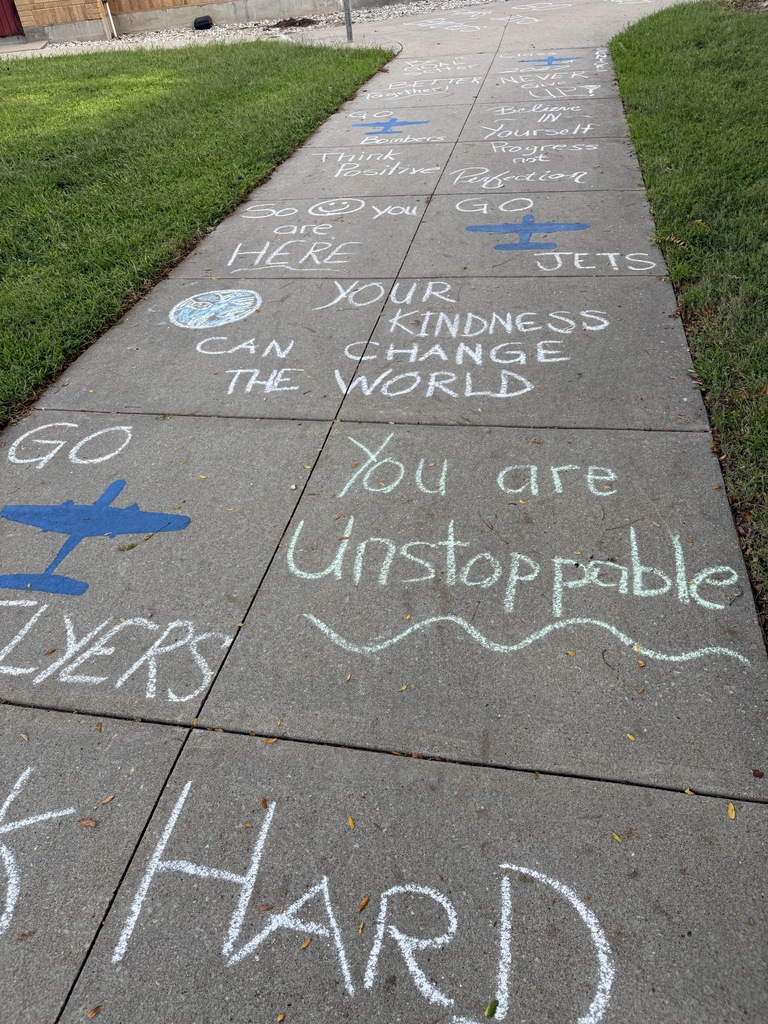 BETTER
together!
NEVER
UP?
GO
Bombers
Believe
IN
Yourself
Think
Positive
Progress
not
Perfection
So you
are
HERE
GO
JETS
YOUR
KINDNESS
CAN CHANGE
THE WORLD
GO
LYERS
You are
Unstoppable
K HARD